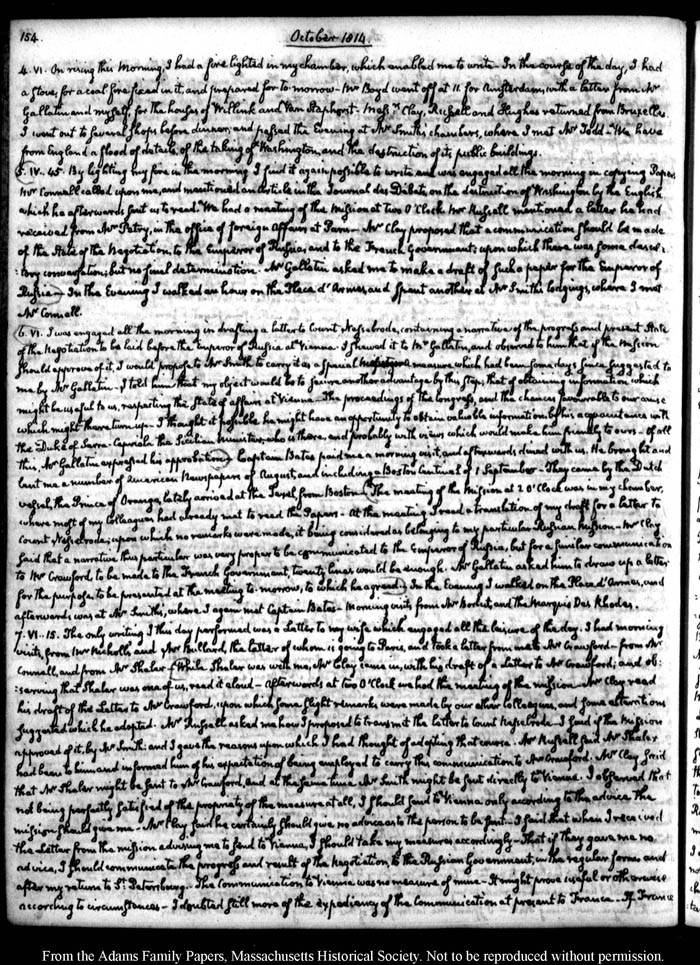 154.
October 1814.
4. VI. On rising this Morning, I had a fire lighted in my chamber, which enabled me to write. In the course of the day, I had
a stove, for a coal fire fixed in it, and prepared for to-morrow. Mr Boyd went off at 11. for Amsterdam, with a letter from Mr
Gallatin and myself, for the houses of Willink and Van Staphorst. Messrs Clay, Russell and Hughes returned from Bruxelles.
I went out to several shops before dinner, and passed the Evening at Mr Smith's chambers, where I met Mr Todd. We have
from England a flood of details, of the taking of Washington, and the destruction of its public buildings.
5. IV. 45. By lighting my fire in the morning I find it again possible to write and was engaged all the morning in copying Papers
Mr Connell called upon me, and mentioned an article in the Journal des Debats, on the destruction of Washington by the English
which he afterwards sent us to read. We had a meeting of the Mission at two O'Clock. Mr Russell mentioned a letter he had
received from Mr Petry, in the office of foreign Affairs at Paris. Mr Clay proposed that a communication should be made
of the State of the Negotiation, to the Emperor of Russia, and to the French Government; upon which there was some desul-
:tory conversation; but no final determination. Mr Gallatin asked me to make a draft of such a paper for the Emperor of
Russia. In the Evening I walked an hour on the Place d'Armes, and spent another at Mr Smith's lodgings, where I met
Mr Connell.
6. VI. I was engaged all the morning in drafting a letter to Count Nesselrode, containing a narrative of the progress and present State
of the Negotiation to be laid before the Emperor of Russia at Vienna. I shewed it to Mr Gallatin, and observed to him that if the Mission
should approve of it, I would propose to Mr Smith to carry it as a special a measure which had been some days since suggested to
me by Mr Gallatin. I told him that my object would be to secure another advantage by this step; that of obtaining information which
might be useful to us, respecting the State of affairs at Vienna. The proceedings of the Congress, and the chances favourable to our cause
which might there turn up. I thought it possible he might have an opportunity to obtain valuable information by his acquaintance with
the Duke of Serra-Capriola the Sicilian minister, who is there, and probably with views which would make him friendly to ours. Of all
this, Mr Gallatin expressed his approbation. Captain Bates paid me a morning visit, and afterwards dined with us. He brought and
lent me a number of American Newspapers of August and including a Boston Centinel of 1 September. They came by the Dutch
vessel, the Prince of Orange, lately arrived at the Texel, from Boston. The meeting of the Mission at 2 O'Clock was in my chamber,
where most of my Colleagues had already met to read the Papers. At the meeting I read a translation of my draft for a letter to
Count Nesselrode; upon which no remarks were made, it being considered as belonging to my particular Russian Mission. Mr Clay
said that a narrative thus particular was very proper to be communicated to the Emperor of Russia, but for a similar communication
to Mr Crawford, to be made to the French Government, twenty lines would be enough. Mr Gallatin asked him to draw up a letter
for the purpose to be presented at the meeting to-morrow, to which he agreed. In the Evening I walked on the Place d'Armes, and
afterwards was at Mr Smith's, where I again met Captain Bates. Morning visits from Mr Bordet, and the Marquis Des Rhodes.
7. VI. 15. The only writing I this day performed was a Letter to my wife which engaged all the leisure of the day. I had morning
visits from Mr Nicholls, and Mr Bullard, the latter of whom is going to Paris, and took a letter from me to Mr Crawford. from Mr
Connell, and from Mr Shaler. While Shaler was with me, Mr Clay came in, with his draft of a letter to Mr Crawford; and ob-
:serving that Shaler was one of us, read it aloud. Afterwards at two O'Clock we had the meeting of the mission. Mr Clay read
his draft of the Letter to Mr Crawford, upon which some slight remarks were made by our other Colleagues, and some alterations
suggested which he adopted. Mr Russell asked me how I proposed to transmit the letter to Count Nesselrode. I said if the Mission
approved of it, by Mr Smith: and I gave the reasons upon which I had thought of adopting that course. Mr Russell said Mr Shaler
had been to him and informed him of his expectation of being employed to carry this communication to Mr Crawford. Mr Clay said
that Mr Shaler might be sent to Mr Crawford, and at the same time Mr Smith might be sent directly to Vienna. I observed that
not being perfectly satisfied of the propriety of the measure at all, I should send to Vienna only according to the advice the
mission should give me. Mr Clay said he certainly should give no advice as to the person to be sent. I said that when I received
the Letter from the mission advising me to send to Vienna, I should take my measures accordingly. That if they gave me no
advice, I should communicate the progress and result of the Negotiation, to the Russian Government, in the regular forms and
after my return to St. Petersburg. The Communication to Vienna was no measure of mine. It might prove useful or otherwise
according to circumstances. I doubted still more of the expediency of the Communication at present to France. If France
From the Adams Family Papers, Massachusetts Historical Society. Not to be reproduced without permission.